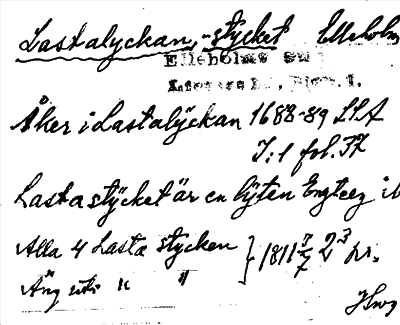 Lastalyckan, -stycket Elleholm
Elleholms
Åker i Lastalyckan 1688-89 LLA
I:1 fol. 37
Lastastycket är en lyten Engteeg i
Alla 4 Lasta stycken
Äng uti " "
1811 7/7 2 3 pr.